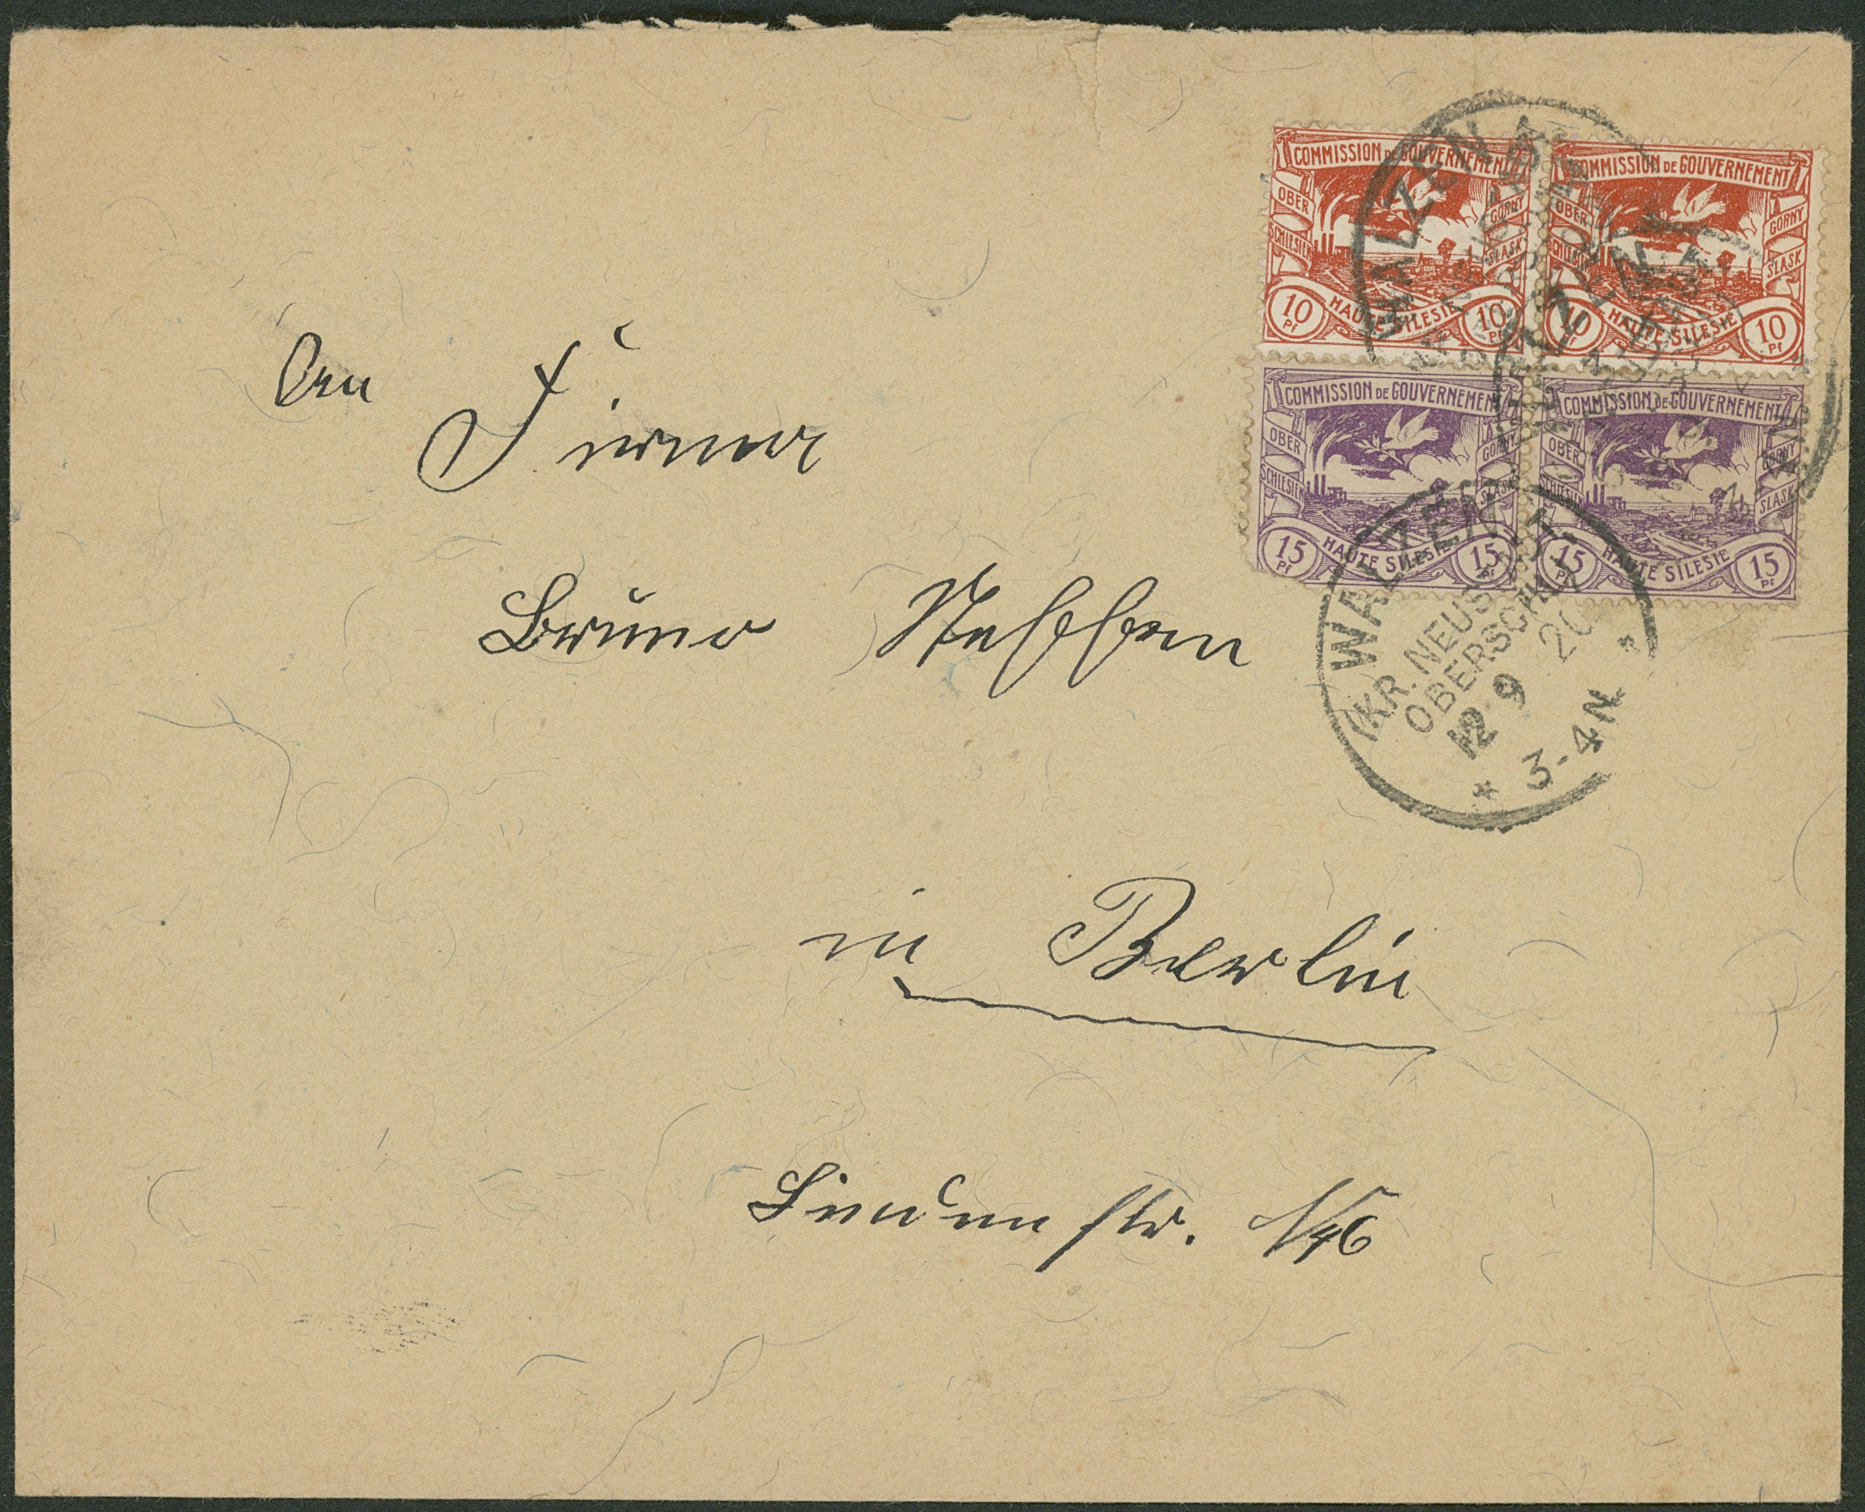 COMMISSION DE GOUVERNEMENT
OBER SCHLESIEN
GORNY SLASK
10 Pf HAUTE SILESIE 10 Pf
COMMISSION DE GOUVERNEMENT
OBER SCHLESIEN
GORNY SLASK
10 Pf HAUTE SILESIE 10 Pf
COMMISSION DE GOUVERNEMENT
OBER SCHLESIEN
GORNY SLASK
15 Pf HAUTE SILESIE 15 Pf
COMMISSION DE GOUVERNEMENT
OBER SCHLESIEN
GORNY SLASK
15 Pf HAUTE SILESIE 15 Pf
WALZEN
WALZEN
WALZEN
(KR. NEUS
OBERSCHL
12 9 20
* 3-4N *
An
Firma
Bruno
in Berlin
Lindenstr.